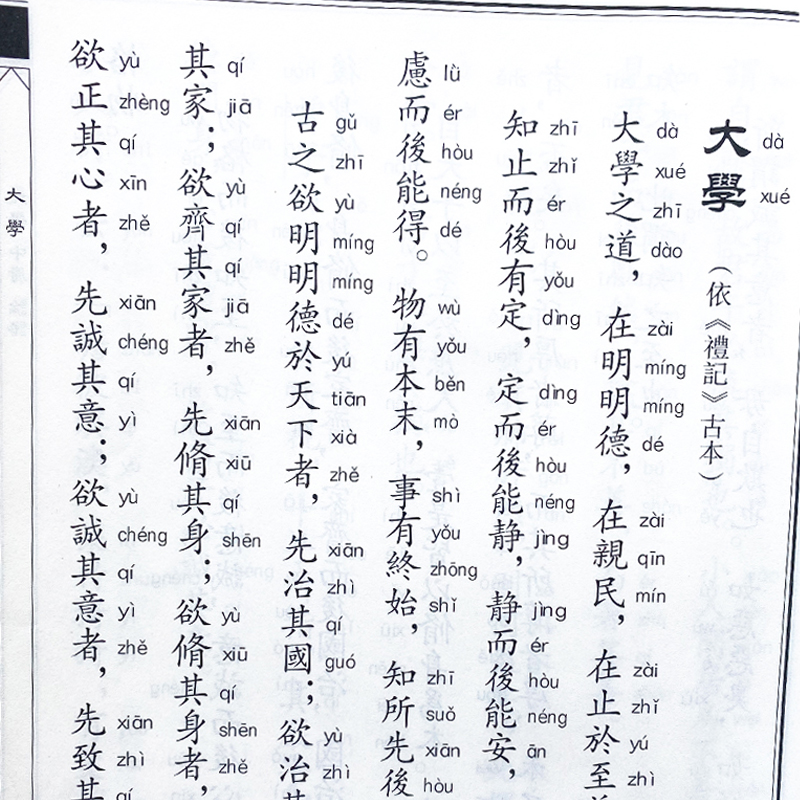 大學（依《禮記》古本）
dà xué
大學之道，在明明德，在親民，在止於至
dà xué zhī dào zài míng míng dé zài qīn mín zài zhǐ yú zhì
知止而後有定，定而後能静，静而後能安，
zhī zhǐ ér hòu yǒu dìng dìng ér hòu néng jìng jìng ér hòu néng ān
慮而後能得。物有本末，事有終始，知所先後
lǜ ér hòu néng dé wù yǒu běn mò shì yǒu zhōng shǐ zhī suǒ xiān hòu
古之欲明明德於天下者，先治其國；欲治其
gǔ zhī yù míng míng dé yú tiān xià zhě xiān zhì qí guó yù zhì
其家；欲齊其家者，先脩其身；欲脩其身者，
qí jiā yù qí qí jiā zhě xiān xiū qí shēn yù xiū qí shēn zhě
欲正其心者，先誠其意；欲誠其意者，先致其
yù zhèng qí xīn zhě xiān chéng qí yì yù chéng qí yì zhě xiān zhì qí
大學